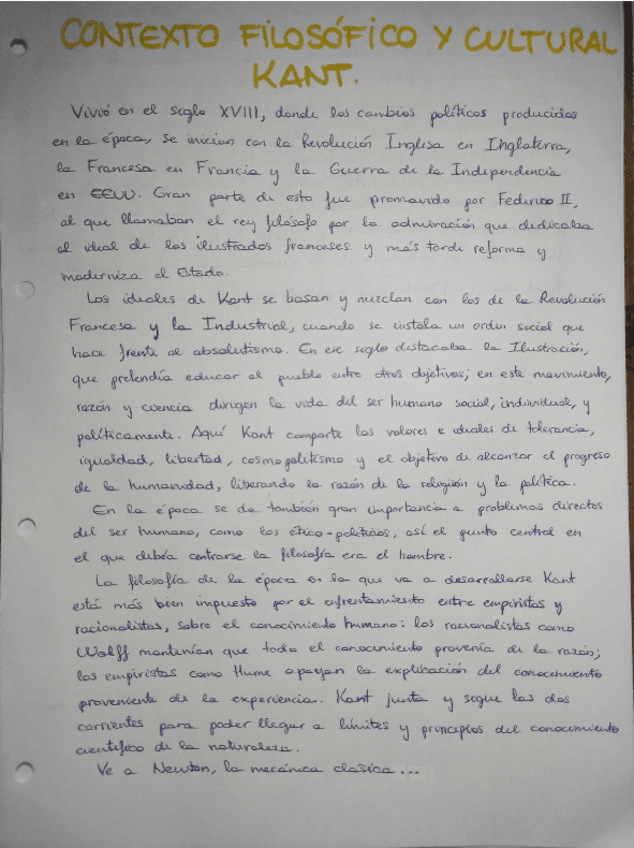 CONTEXTO FILOSÓFICO Y CULTURAL
KANT.
Vivió en el siglo XVIII, donde los cambios políticos producidos
en la época, se inician con la Revolución Inglesa en Inglaterra,
la Francesa en Francia y la Guerra de la Independencia
en EEUU. Gran parte de esto fue promovido por Federico II,
al que llamaban el rey filósofo por la admiración que dedicaba
al ideal de los ilustrados franceses y más tarde reforma y
moderniza el Estado.
Los ideales de Kant se basan y mezclan con los de la Revolución
Francesa y la Industrial, cuando se instala un orden social que
hace frente al absolutismo. En ese siglo destacaba la Ilustración,
que pretendía educar al pueblo entre otros objetivos; en este movimiento,
razón y ciencia dirigen la vida del ser humano social, individual, y
políticamente. Aquí Kant comparte los valores e ideales de tolerancia,
igualdad, libertad, cosmopolitismo y el objetivo de alcanzar el progreso
de la humanidad, liberando la razón de la religión y la política.
En la época se da también gran importancia a problemas directos
del ser humano, como los ético-políticos, así el punto central en
el que debía centrarse la filosofía era el hombre.
La filosofía de la época en la que va a desarrollarse Kant
está más bien impuesto por el enfrentamiento entre empiristas y
racionalistas, sobre el conocimiento humano: los racionalistas como
Wolff mantenían que todo el conocimiento provenía de la razón;
los empiristas como Hume apoyan la explicación del conocimiento
proveniente de la experiencia. Kant junta y sigue las dos
corrientes para poder llegar a límites y principios del conocimiento
científico de la naturaleza.
Ve a Newton, la mecánica clásica...